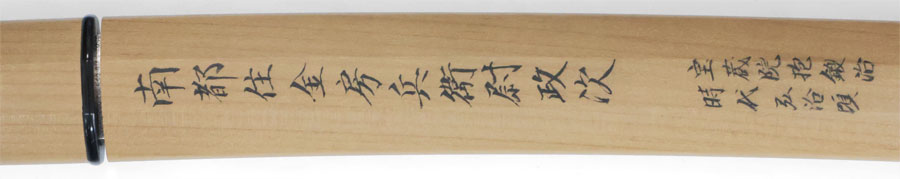 南都住金房兵衛尉政次
宝蔵院抱鍛冶
時代弘治頃